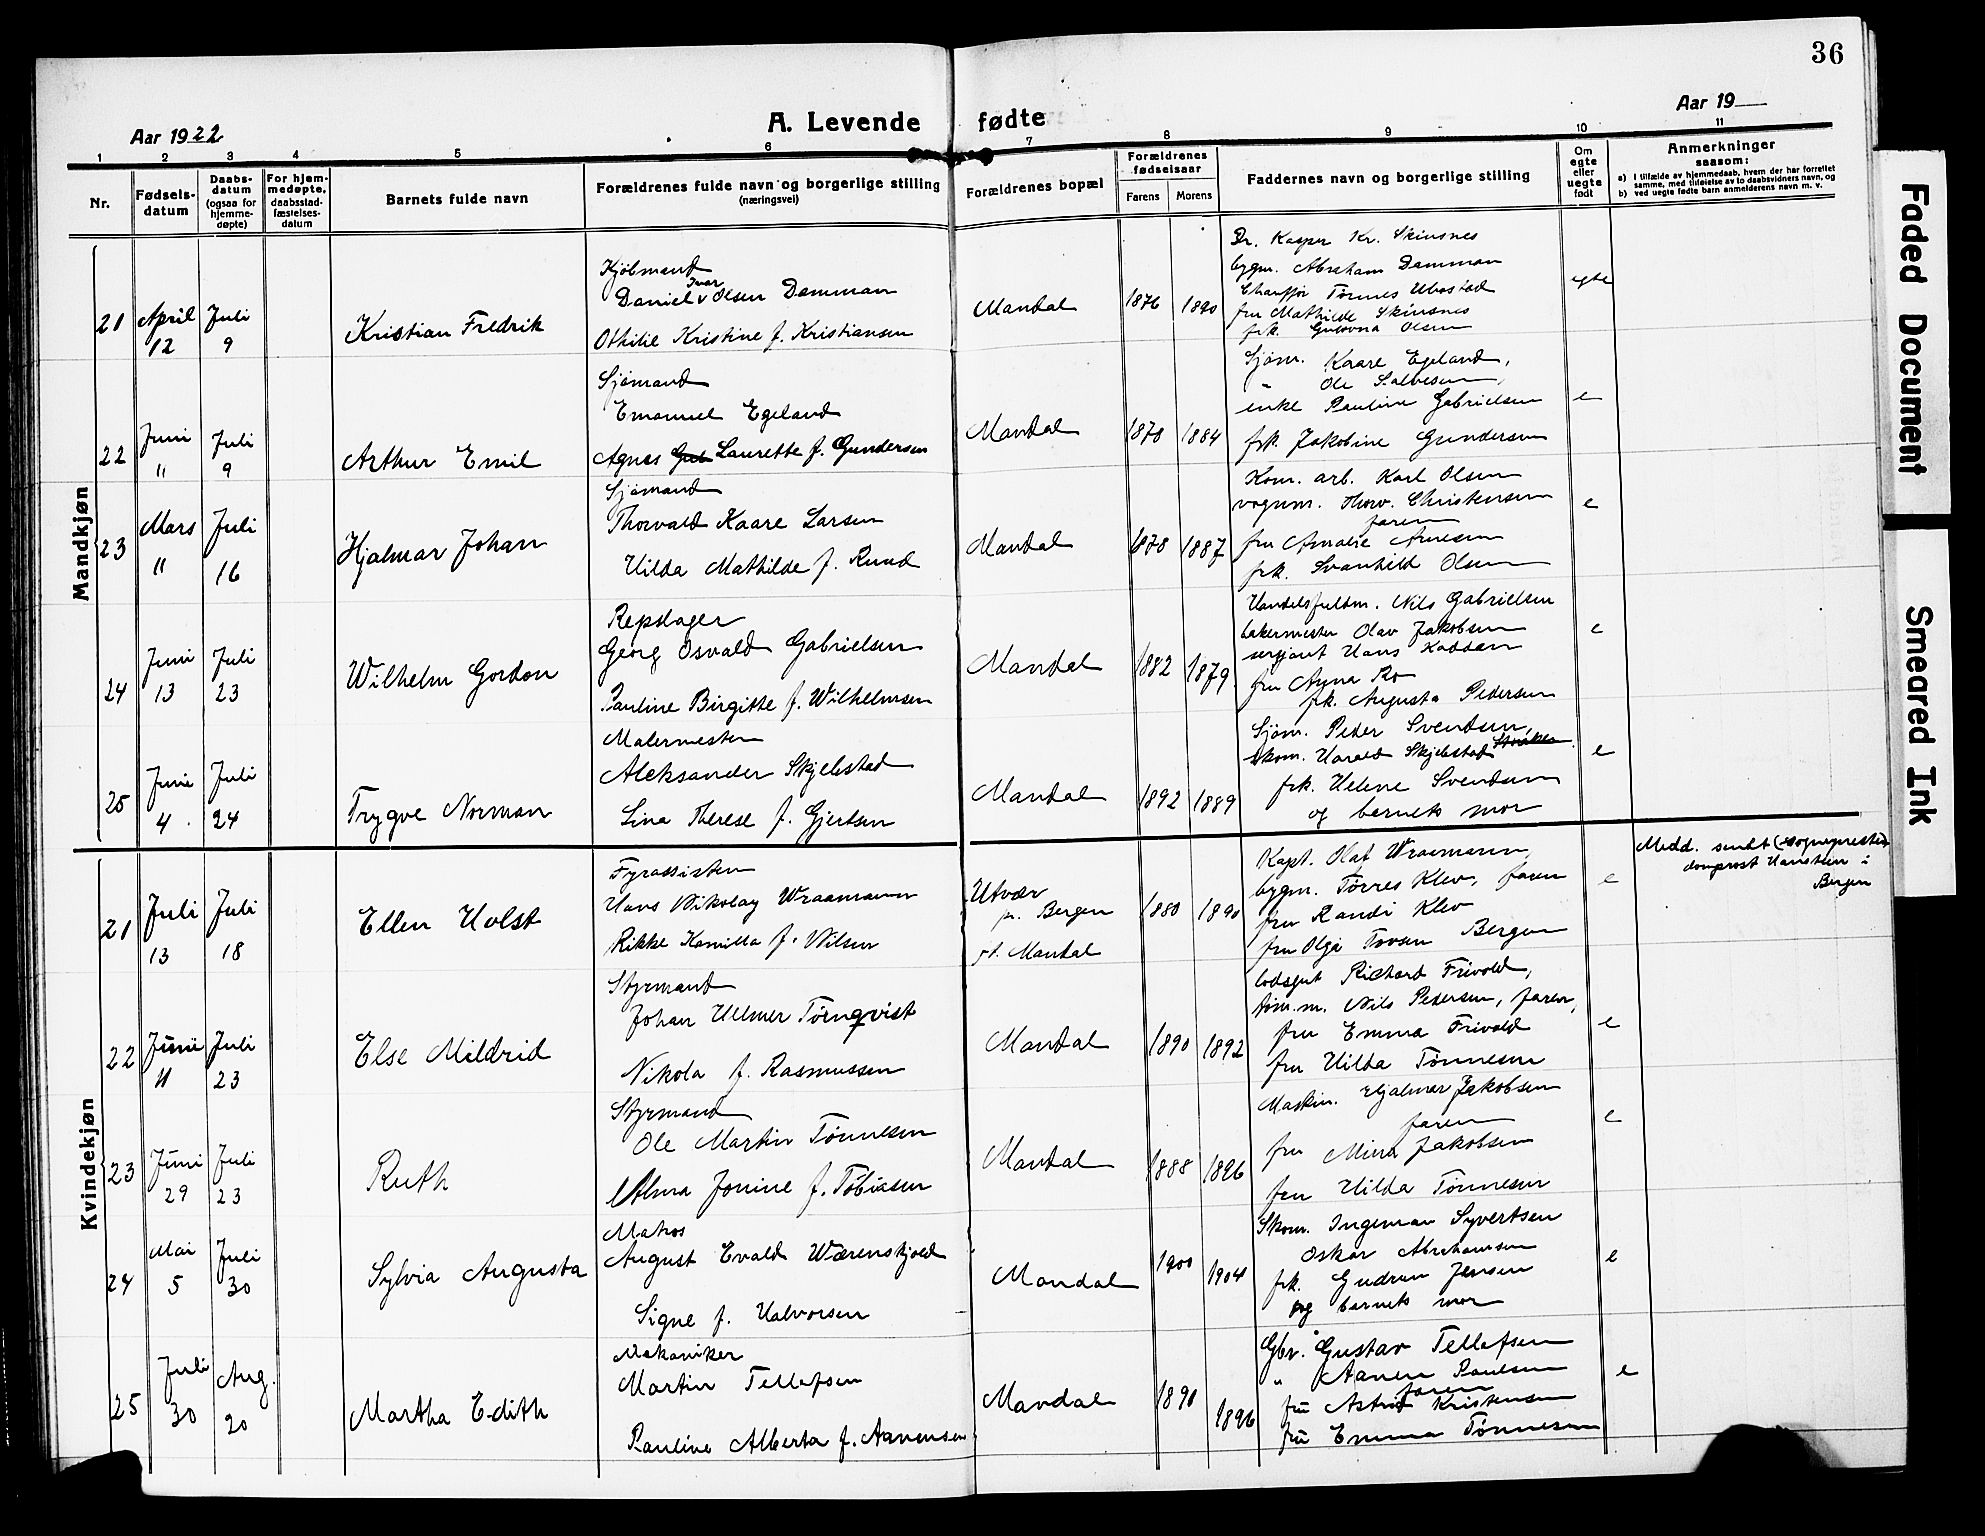 36
Aar 1922
A. Levende fødte
Aar 19
1 2 3 4 5 6 7 8 9 10 11
Nr.
Fødsels-
datum
Daabs-
datum
(ogsaa for
hjemme-
døpte)
For hjem-
medøpte,
daabsstad-
fæstelses-
datum
Barnets fulde navn
Forældrenes fulde navn og borgerlige stilling
(næringsvei)
Forældrenes bopæl
Forældrenes
fødselsaar
Farens Morens
Faddernes navn og borgerlige stilling
Om
egte
eller
uegte
født
Anmerkninger
saasom:
a) I tilfælde av hjemmedaab, hvem der har forrettet
samme, med tilføielse av to daabsvidners navn, og
b) ved uegte fødte barn anmelderens navn m. v.
Mandkjøn
21
April
12
Juli
9
Kristian Fredrik
Kjøbmand
Ivar
Daniel v Olsen Damman
Othilie Kristine f. Kristiansen
Mandal
1876
1890
Dr. Kasper Kr. Skinsnes
bygm. Abraham Damman
Chauffør Tørnes Ubostad
fru Mathilde Skinsnes
frk. Olsen
egte
22
Juni
11
Juli
9
Arthur Emil
Sjømand
Emanuel Egeland
Agnes Laurette f. Gundersen
Mandal
1878
1884
Sjøm. Kaare Egeland,
" Ole Salvesen,
enke Pauline Gabrielsen
frk. Jakobine Gundersen
e
23
Mars
11
Juli
16
Hjalmar Johan
Sjømand
Thorvald Kaare Larsen
Hilda Mathilde f. Ruud
Mandal
1878
1887
Kom. arb. Karl Olsen
vognm. Thorv. Christensen
faren
fru Amalie Arnesen
frk. Svanhild Olsen
e
24
Juni
13
Juli
23
Wilhelm Gordon
Repslager
Georg Osvald Gabrielsen
Pauline Birgitte f. Wilhelmsen
Mandal
1882
1879
Handelsfuldm. Nils Gabrielsen
bakermester Olav Jakobsen
sersjant Hans Kaddan
fru Anna Ro
frk. Augusta Pedersen
e
25
Juni
4.
Juli
24
Trygve Norman
Malermester
Aleksander Skjelstad
Lina Therese f. Gjertsen
Mandal
1892
1889
Sjøm. Peder Svendsen,
skom. Harald Skjelstad
frk. Helene Svendsen
og barnets mor
e
Kvindekjøn
21
Juli
13
Juli
18
Ellen Holst
Fyrassistent
Hans Nikolay Wraamann
Rikke Kamilla f. Nilsen
Utvær
pr. Bergen
pt. Mandal
1880
1890
Kapt. Olaf Wraamann,
bygm. Tørres Klev, faren
fru Randi Klev
fru Olga Tovsen Bergen
e
Medd. sendt sogneprest
domprost Hanssen i
Bergen
22
Juni
11
Juli
23
Else Mildrid
Styrmand
Johan Helmer Tørnqvist
Nikola f. Rasmussen
Mandal
1890
1892
lodsgut Richard Frivold,
tøm.m. Nils Pedersen, faren,
fru Emma Frivold
fru Hilda Tønnesen
e
23
Juni
29
Juli
23
Ruth
Styrmand
Ole Martin Tønnesen
Alma Jonine f. Tobiasen
Mandal
1888
1896
Maskin. Hjalmar Jakobsen
faren
fru Mina Jakobsen
fru Hilda Tønnesen
e
24
Mai
5
Juli
30
Sylvia Augusta
Matros
August Evald Wærenskjold
Signe f. Halvorsen
Mandal
1900
1904
Skom. Ingeman Syvertsen
Oskar Abrahamsen
frk. Gudrun Jensen
og barnets mor
e
25
Juli
30
Aug.
20
Martha Edith
Mekaniker
Martin Tellefsen
Pauline Alberta f. Aanensen
Mandal
1890
1896
Gbr. Gustav Tellefsen
" Aanen Paulsen
faren
fru Astrid Kristensen
fru Emma Tønnesen
e
Faded Document
Smeared Ink